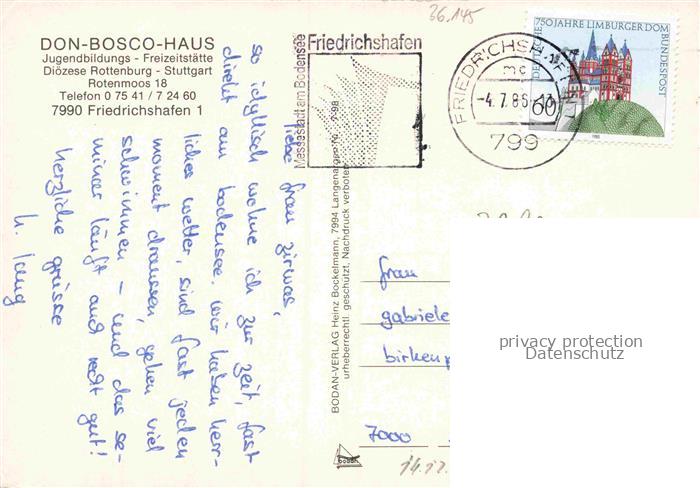 36.145
DON-BOSCO-HAUS
Jugendbildungs - Freizeitstätte
Diözese Rottenburg - Stuttgart
Rotenmoos 18
Telefon 0 75 41 / 7 24 60
7990 Friedrichshafen 1
Messestadt am Bodensee
Friedrichshafen
FRIEDRICHSHAFEN 1
mc
-4.7.86-13
799
750 JAHRE LIMBURGER DOM
DEUTSCHE BUNDESPOST
60
1985
liebe frau zirwas,
so idyllisch wohne ich zur zeit, fast
direkt am bodensee. wir haben herr-
liches wetter, sind fast jeden
moment draussen, gehen viel
schwimmen – und das se-
minar läuft auch recht gut!
herzliche grüsse
h. lang
BODAN-VERLAG Heinz Bockelmann, 7994 Langenargen, Nr. F 98
urheberrechtl. geschützt, Nachdruck verboten
bodan
frau
gabriele
birken
7000
privacy protection
Datenschutz